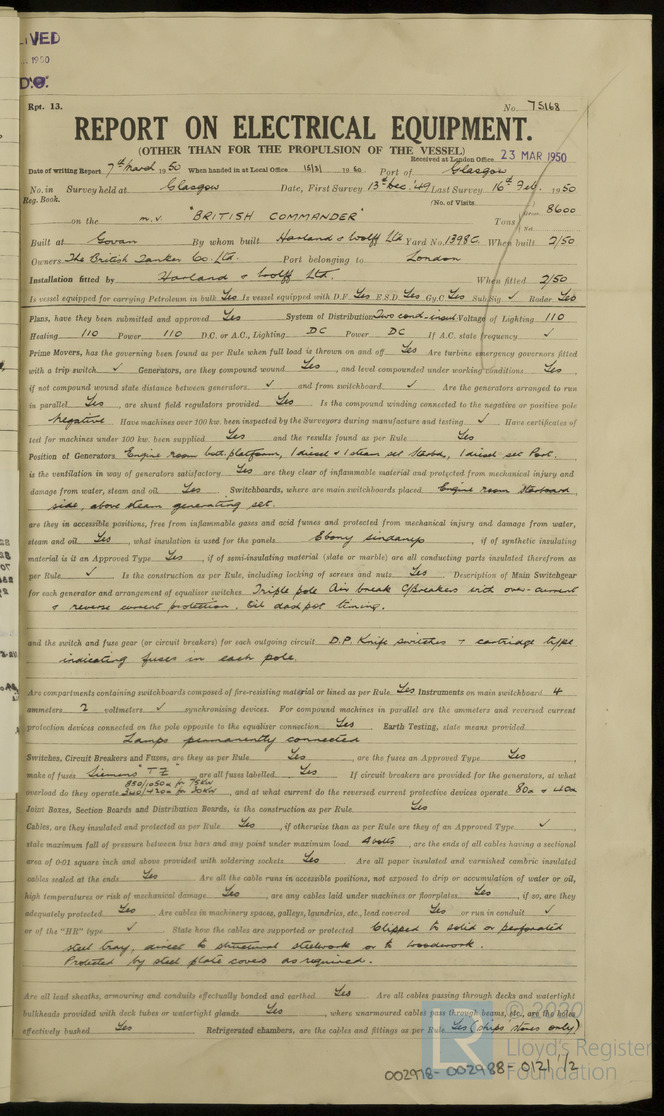 IVED
1950
D.O.
Rpt. 13.
No. 75168
REPORT ON ELECTRICAL EQUIPMENT.
(OTHER THAN FOR THE PROPULSION OF THE VESSEL)
Received at London Office 23 MAR 1950
Date of writing Report 7th March 1950 When handed in at Local Office 15/3/ 1950 Port of Glasgow
No. in Survey held at Glasgow Date, First Survey 13th Dec. '49 Last Survey 16th Feb. 1950
Reg. Book. (No. of Visits )
on the m.v. "BRITISH COMMANDER" Tons Gross 8600
Net
Built at Govan By whom built Harland & Wolff Ltd Yard No. 1398G. When built 2/50
Owners The British Tanker Co. Ltd. Port belonging to London
Installation fitted by Harland & Wolff Ltd. When fitted 2/50
Is vessel equipped for carrying Petroleum in bulk Yes Is vessel equipped with D.F. Yes E.S.D. Yes Gy.C. Yes Sub.Sig. ✓ Radar Yes
Plans, have they been submitted and approved Yes System of Distribution Two cond. insul. Voltage of Lighting 110
Heating 110 Power 110 D.C. or A.C., Lighting DC Power DC If A.C. state frequency ✓
Prime Movers, has the governing been found as per Rule when full load is thrown on and off Yes Are turbine emergency governors fitted
with a trip switch ✓ Generators, are they compound wound Yes, and level compounded under working conditions Yes,
if not compound wound state distance between generators ✓ and from switchboard ✓ Are the generators arranged to run
in parallel Yes, are shunt field regulators provided Yes. Is the compound winding connected to the negative or positive pole
Negative. Have machines over 100 kw. been inspected by the Surveyors during manufacture and testing ✓ Have certificates of
test for machines under 100 kw. been supplied Yes and the results found as per Rule Yes
Position of Generators Engine room bott. platform, 1 diesel & 1 steam set Starbd, 1 diesel set Port.
is the ventilation in way of generators satisfactory Yes are they clear of inflammable material and protected from mechanical injury and
damage from water, steam and oil Yes. Switchboards, where are main switchboards placed Engine room Starboard
side, above steam generating set.
are they in accessible positions, free from inflammable gases and acid fumes and protected from mechanical injury and damage from water,
steam and oil Yes, what insulation is used for the panels Ebony sindanyo, if of synthetic insulating
material is it an Approved Type Yes, if of semi-insulating material (slate or marble) are all conducting parts insulated therefrom as
per Rule ✓ Is the construction as per Rule, including locking of screws and nuts Yes. Description of Main Switchgear
for each generator and arrangement of equaliser switches Triple pole Air break C/Breakers with over-current
& reverse current protection. Oil dashpot timing.
and the switch and fuse gear (or circuit breakers) for each outgoing circuit D.P. Knife switches + cartridge type
indicating fuses in each pole.
Are compartments containing switchboards composed of fire-resisting material or lined as per Rule Yes Instruments on main switchboard 4
ammeters 2 voltmeters ✓ synchronising devices. For compound machines in parallel are the ammeters and reversed current
protection devices connected on the pole opposite to the equaliser connection Yes. Earth Testing, state means provided
Lamps permanently connected
Switches, Circuit Breakers and Fuses, are they as per Rule Yes, are the fuses an Approved Type Yes
make of fuses Siemens "TZ" are all fuses labelled Yes If circuit breakers are provided for the generators, at what
overload do they operate 850/1050a for 75KW 340/420a for 30KW, and at what current do the reversed current protective devices operate 80a & 40a
Joint Boxes, Section Boards and Distribution Boards, is the construction as per Rule Yes
Cables, are they insulated and protected as per Rule Yes, if otherwise than as per Rule are they of an Approved Type ✓
state maximum fall of pressure between bus bars and any point under maximum load 4 volts, are the ends of all cables having a sectional
area of 0·01 square inch and above provided with soldering sockets Yes Are all paper insulated and varnished cambric insulated
cables sealed at the ends Yes Are all the cable runs in accessible positions, not exposed to drip or accumulation of water or oil,
high temperatures or risk of mechanical damage Yes, are any cables laid under machines or floorplates Yes, if so, are they
adequately protected Yes Are cables in machinery spaces, galleys, laundries, etc., lead covered Yes or run in conduit ✓
or of the "HR" type ✓ State how the cables are supported or protected Clipped to solid or perforated
steel tray, direct to structural steelwork or to woodwork.
Protected by steel plate covers as required.
Are all lead sheaths, armouring and conduits effectually bonded and earthed Yes Are all cables passing through decks and watertight
bulkheads provided with deck tubes or watertight glands Yes, where unarmoured cables pass through beams, etc., are the holes
effectively bushed Yes Refrigerated chambers, are the cables and fittings as per Rule Yes (ships stores only)
© 2020
Lloyd's Register
Foundation
002978-002988-0121 1/2